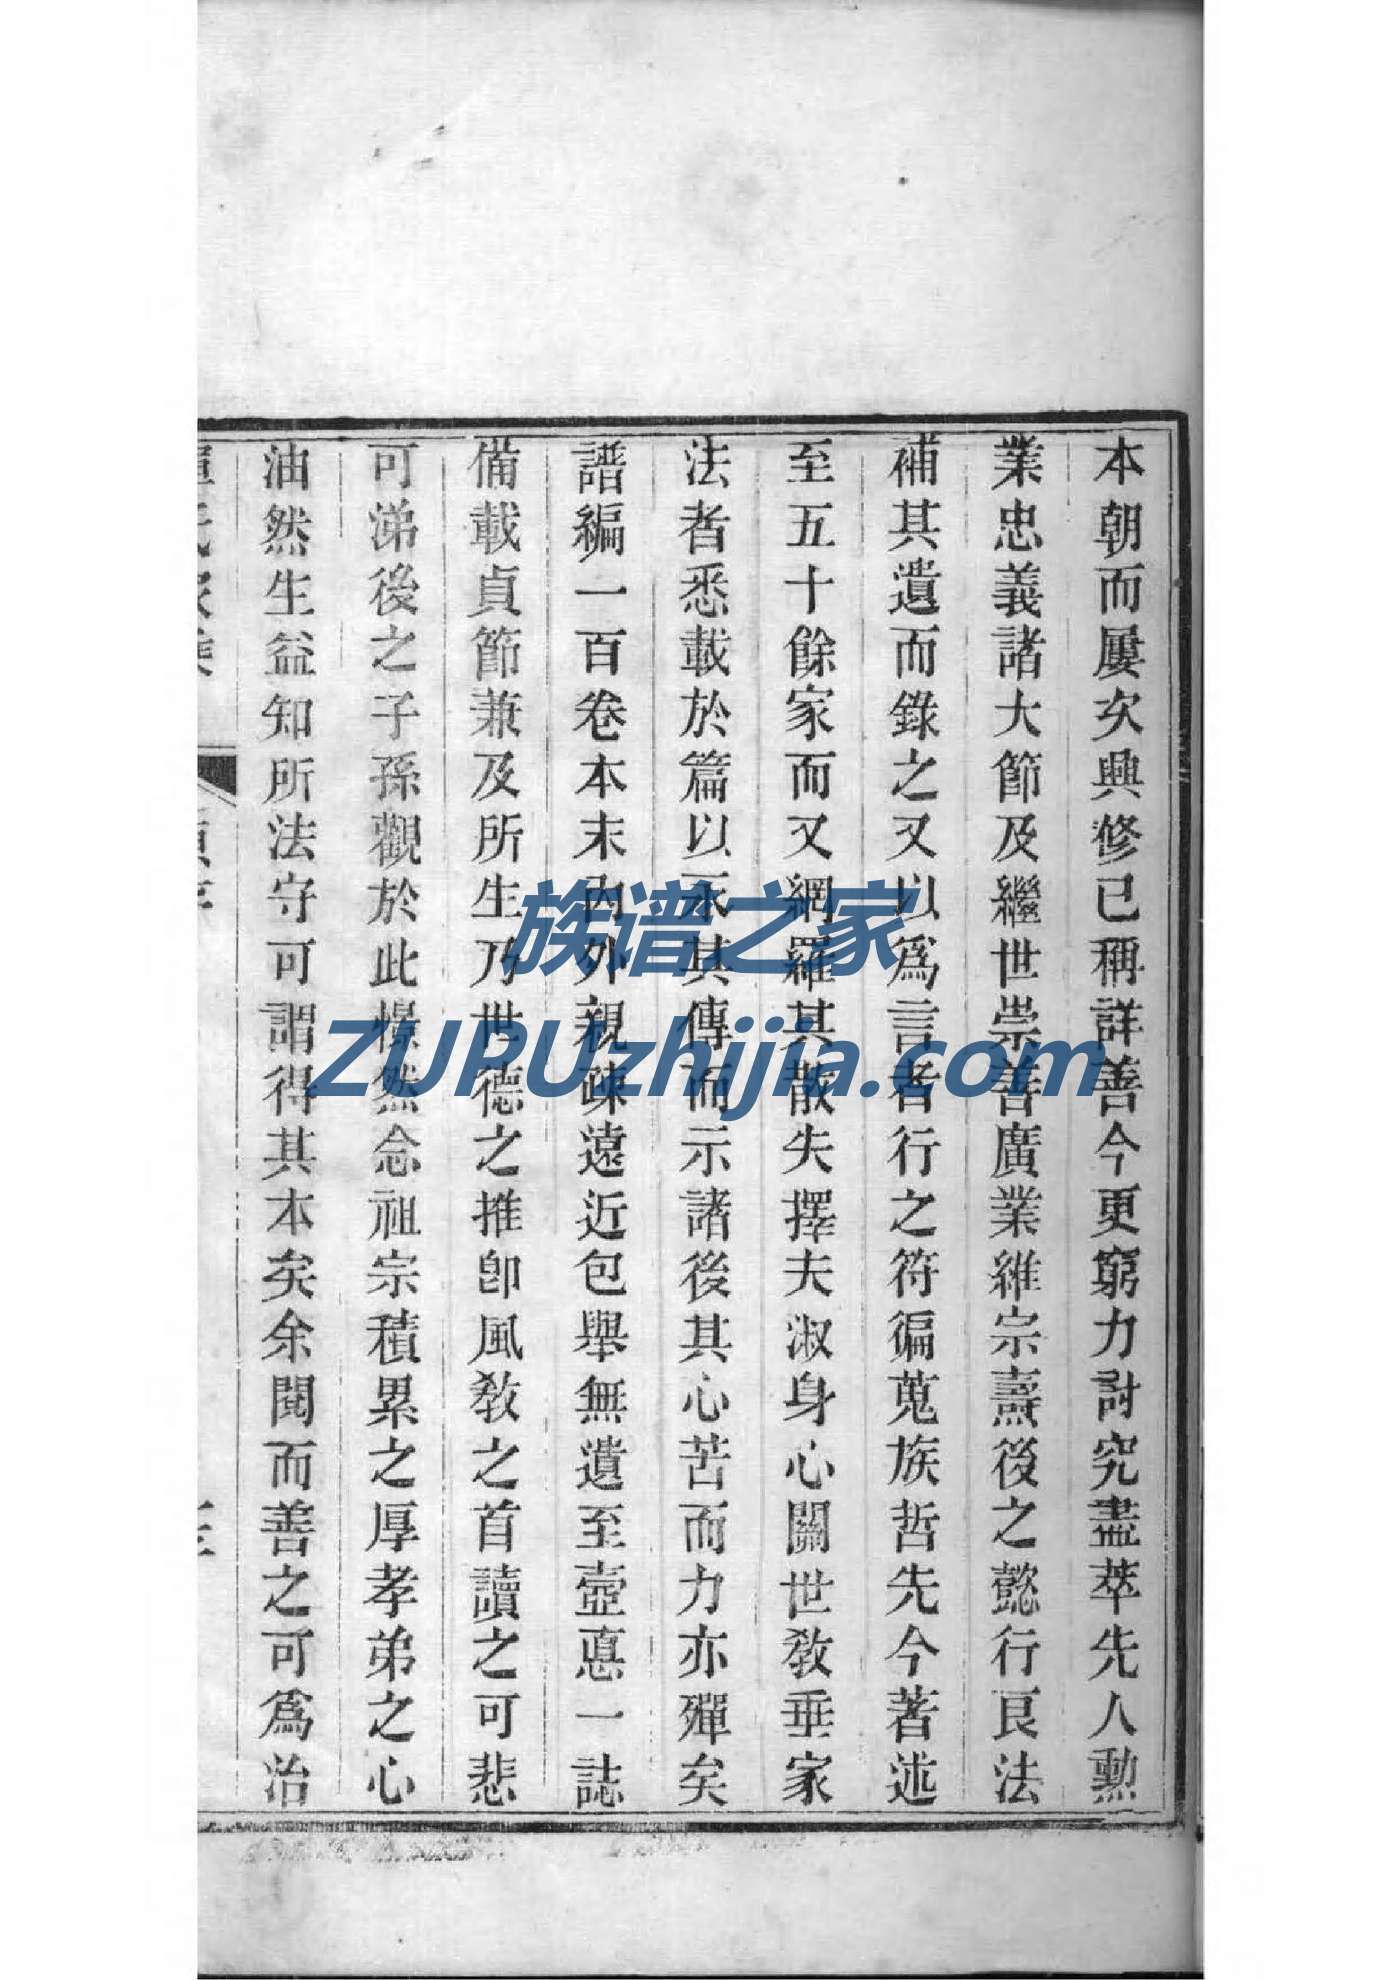 本朝而屢次興修已稱詳善今更窮力討究盡萃先人勳
業忠義諸大節及繼世崇善廣業維宗燾後之懿行良法
補其遺而錄之又以為言者行之符徧蒐族哲先今著述
至五十餘家而又網羅其散失擇夫淑身心關世敎垂家
法者悉載於篇以永其傳而示諸後其心苦而力亦殫矣
譜編一百卷本末內外親疎遠近包舉無遺至壼悳一誌
備載貞節兼及所生乃世德之推卽風敎之首讀之可悲
可涕後之子孫觀於此憬然念祖宗積累之厚孝弟之心
油然生益知所法守可謂得其本矣余閱而善之可為治
族谱之家
ZUPUzhijia.com